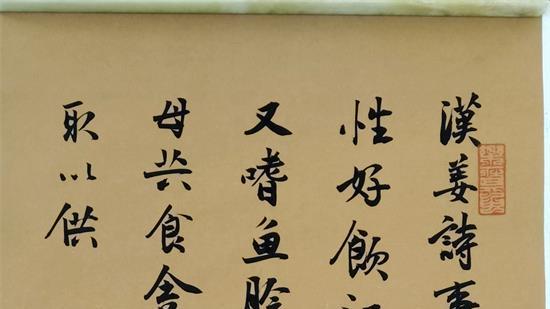 漢姜詩事
性好飲
又嗜鱼
母共食舍
取以供